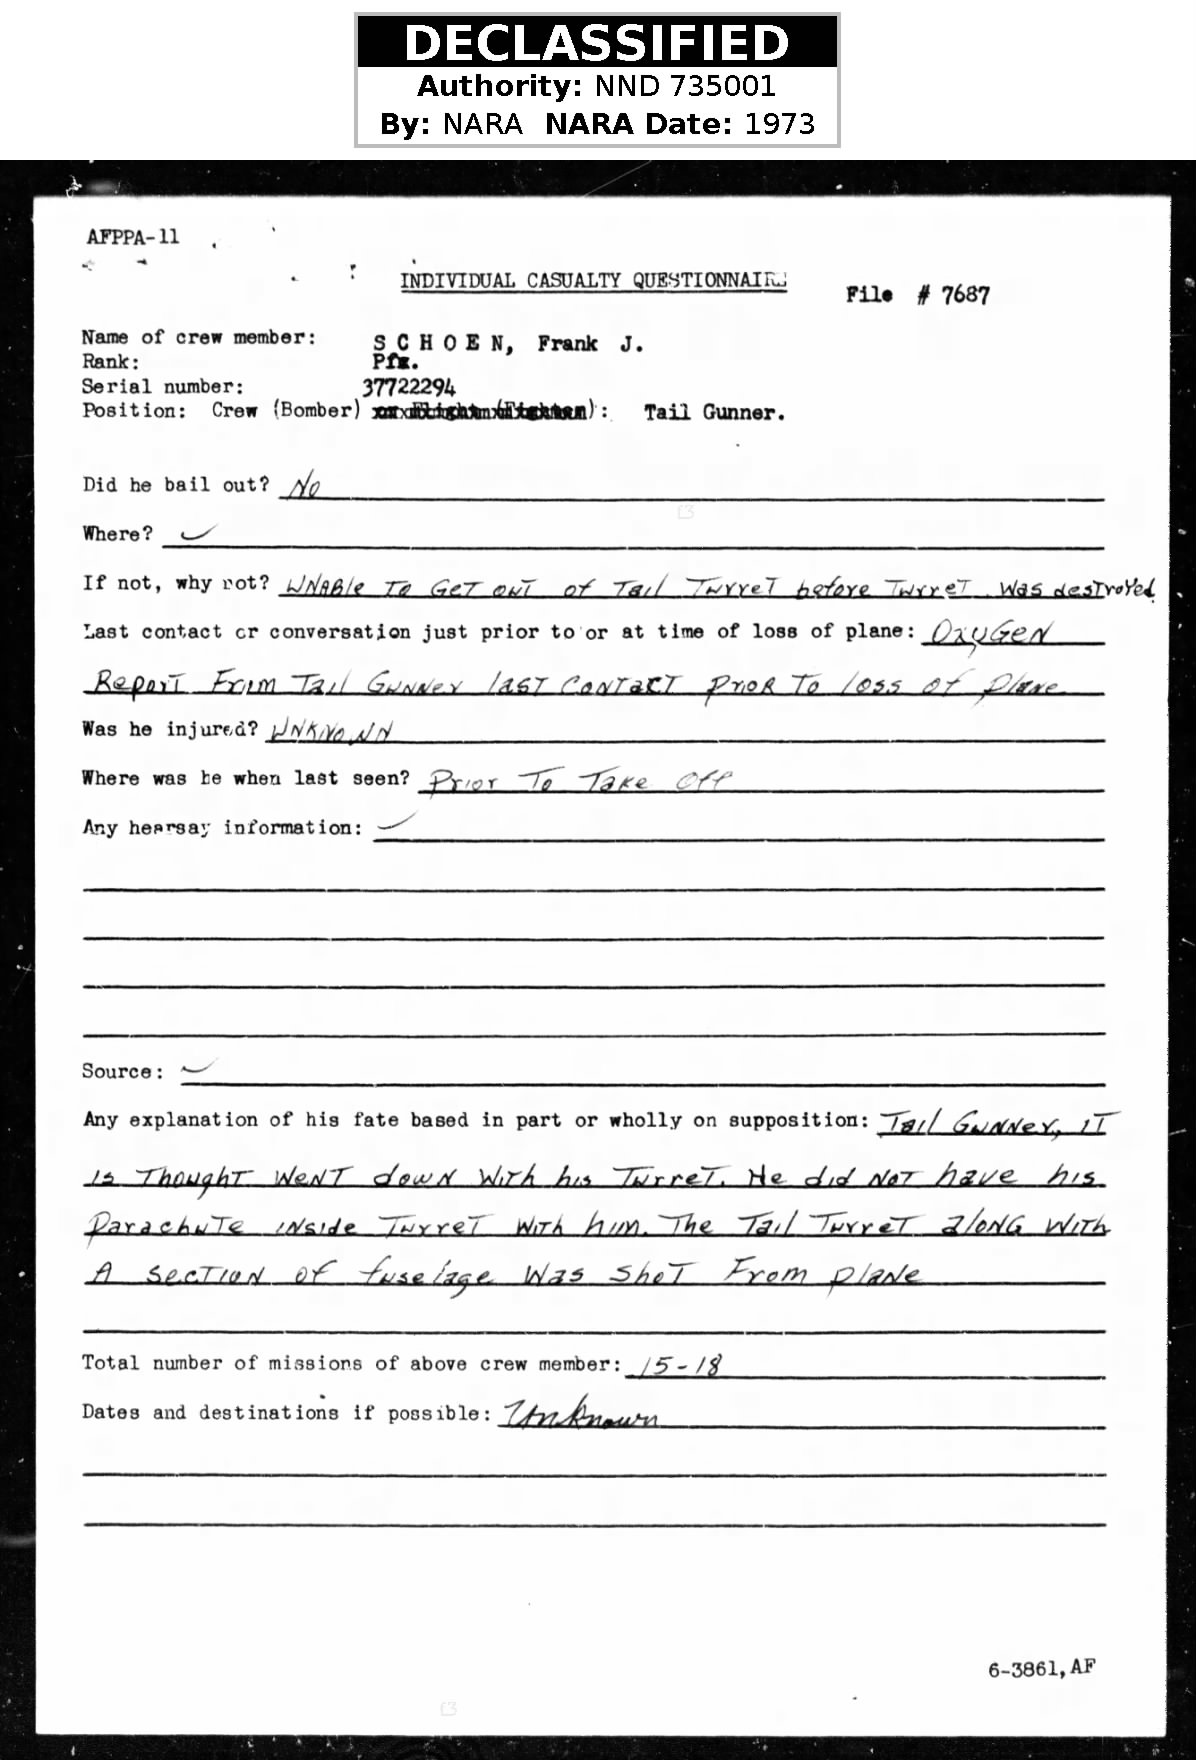 DECLASSIFIED
Authority: NND 735001
By: NARA NARA Date: 1973
AFPPA-11
INDIVIDUAL CASUALTY QUESTIONNAIRE
File # 7687
Name of crew member: S C H O E N, Frank J.
Rank: Pfc.
Serial number: 37722294
Position: Crew (Bomber) or Flight (Fighter): Tail Gunner.
Did he bail out? No
Where?
If not, why not? UNABle To GeT ouT of Tail TurreT before TurreT Was desTroYed.
Last contact or conversation just prior to or at time of loss of plane: OxyGeN
RePorT From Tail GuNNer lasT CoNTacT PrioR To loss of Plane
Was he injured? UNKNowN
Where was he when last seen? Prior To Take Off
Any hearsay information:
Source:
Any explanation of his fate based in part or wholly on supposition: Tail GuNNer, iT
is ThoughT WeNT dowN With his TurreT. He did NoT have his
ParachuTe iNside TurreT WiTh him. The Tail TurreT aloNG WiTh
A secTioN of fuselage Was shoT From plaNe
Total number of missions of above crew member: 15-18
Dates and destinations if possible: Unknown
6-3861,AF